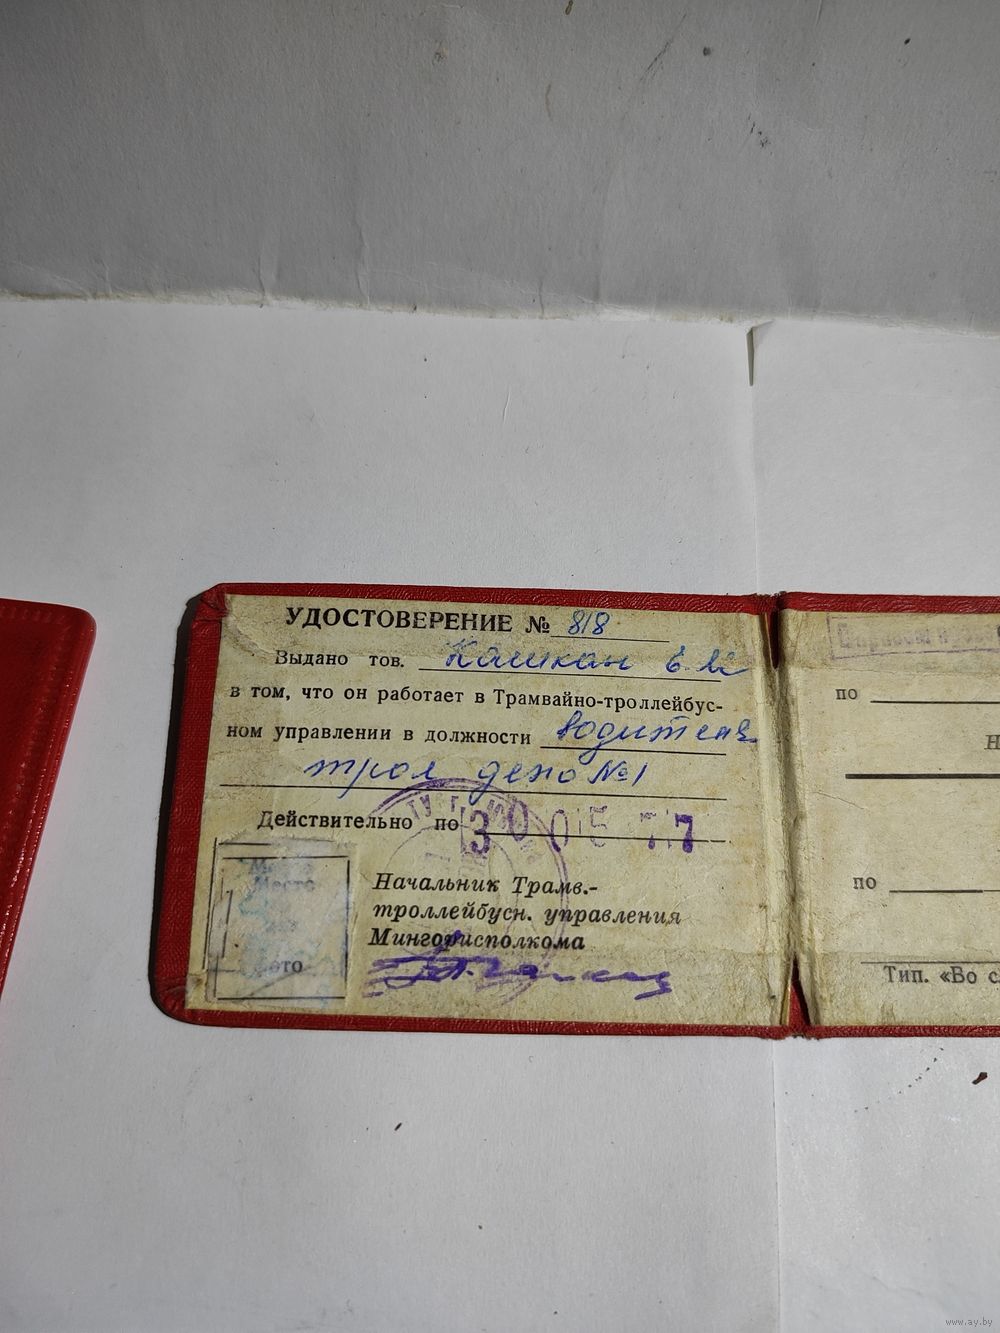 УДОСТОВЕРЕНИЕ № 818
Выдано тов. Кашкан Е. М
в том, что он работает в Трамвайно-троллейбус-
ном управлении в должности водителя
трол депо №1
Действительно по 30 05 77
Место
фото
Начальник Трамв.-
троллейбусн. управления
Мингорисполкома
по
Н
по
Тип. «Во с
www.ay.by